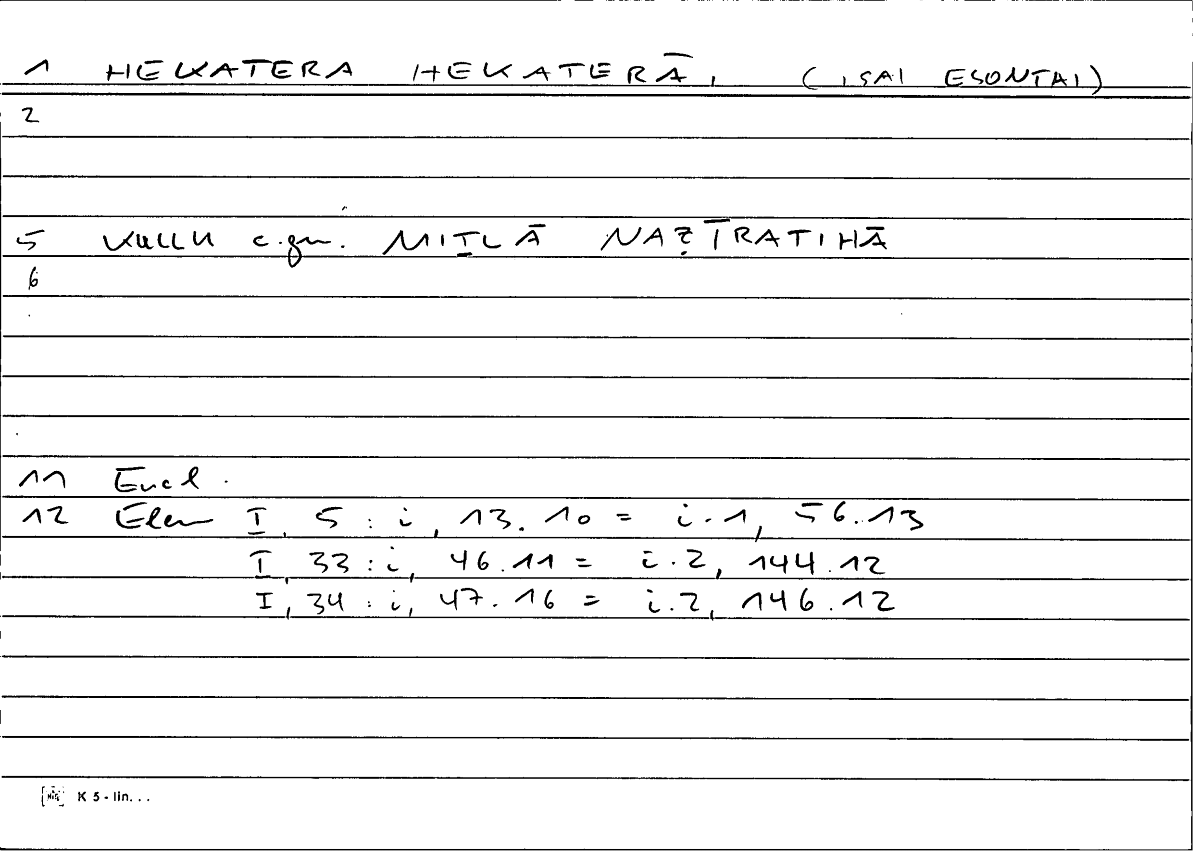 1 HEKATERA HEKATERĀ, (ISAI ESONTAI)
2
5 KULLU c.gn. MIṮLĀ NAẒĪRATIHĀ
6
11 Eucl.
12 Elem I, 5 : i, 13.10 = i.1, 56.13
I, 33 : i, 46.11 = i.2, 144.12
I, 34 : i, 47.16 = i.2, 146.12
K 5 - lin. . .